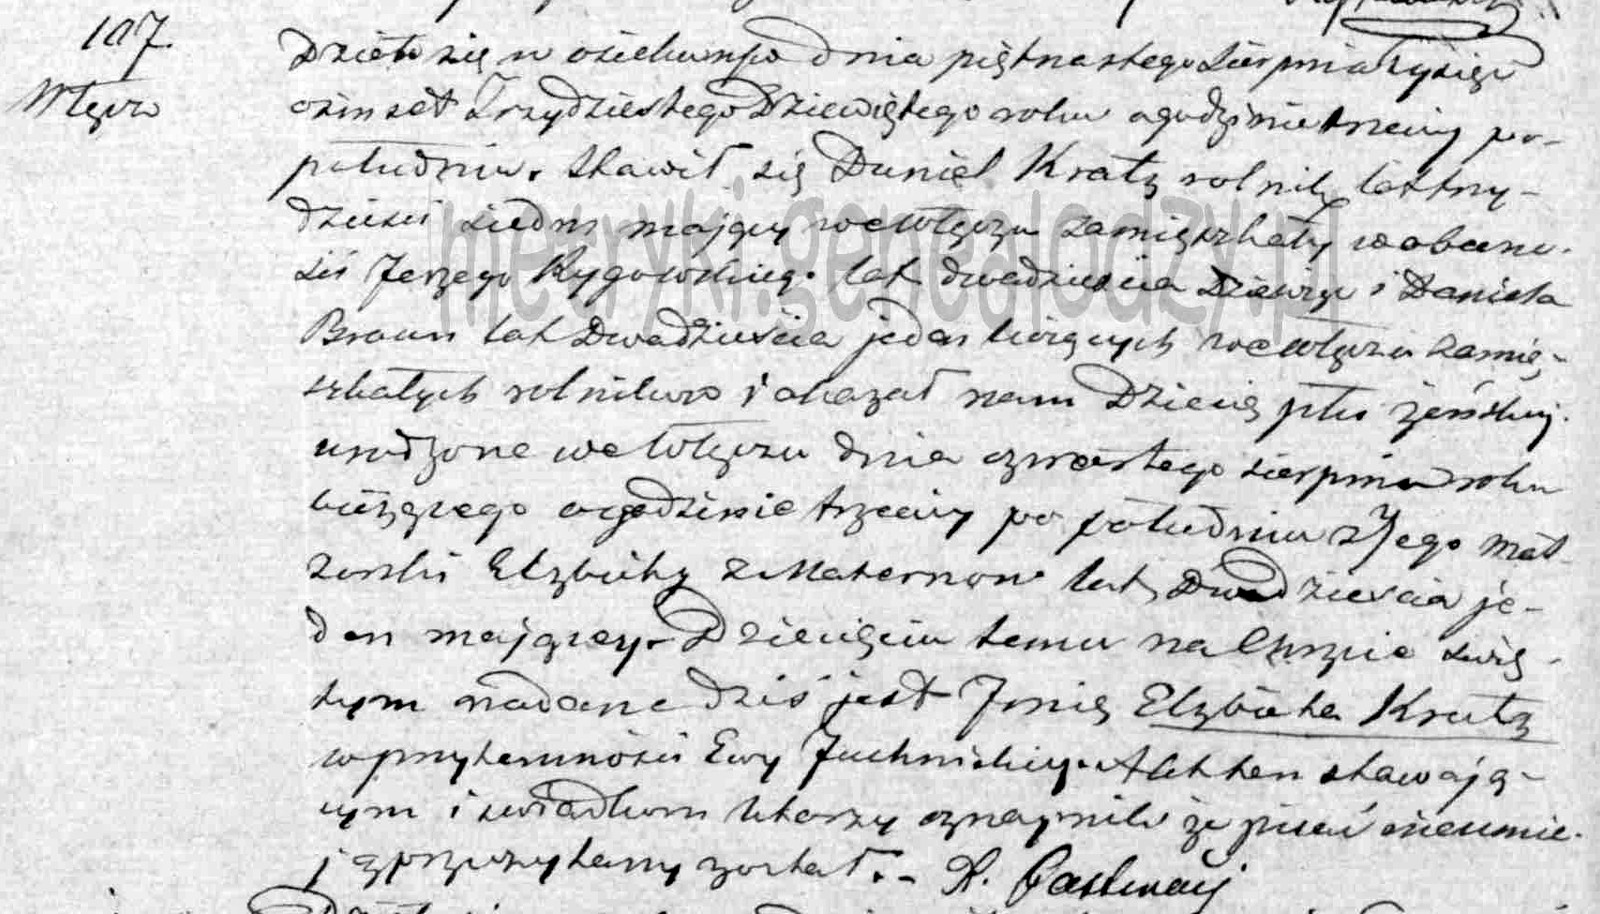 107.
Działo się w dnia piętnastego Sierpnia Tysiąc
ośmset Trzydziestego Dziewiątego roku o godzinie trzeciej po-
południu. Stawił się Daniel Kratz rolnik lat trzy-
dzieści siedm mający we zamięszkały w obecno-
ści Jerzego Rygowskiego lat dwadzieścia Dziewięć i Daniela
Braun lat Dwadzieścia jeden liczących we zamię-
szkałych rolników i okazał nam Dziecię płci żeńskiej
urodzone we dnia czwartego sierpnia roku
bieżącego o godzinie trzeciej po południu z Jego Mał-
żonki Elżbiety z Maternow lat Dwadzieścia je-
den mającey. Dziecięciu temu na Chrzcie świę-
tym nadane dziś jest Jmię Elżbieta Kratz
w przytomności Ewy Akt ten stawają-
cym i świadkom którzy oznajmili że pisać nieumie-
ją przeczytany został.-
metryki.genealodzy.pl